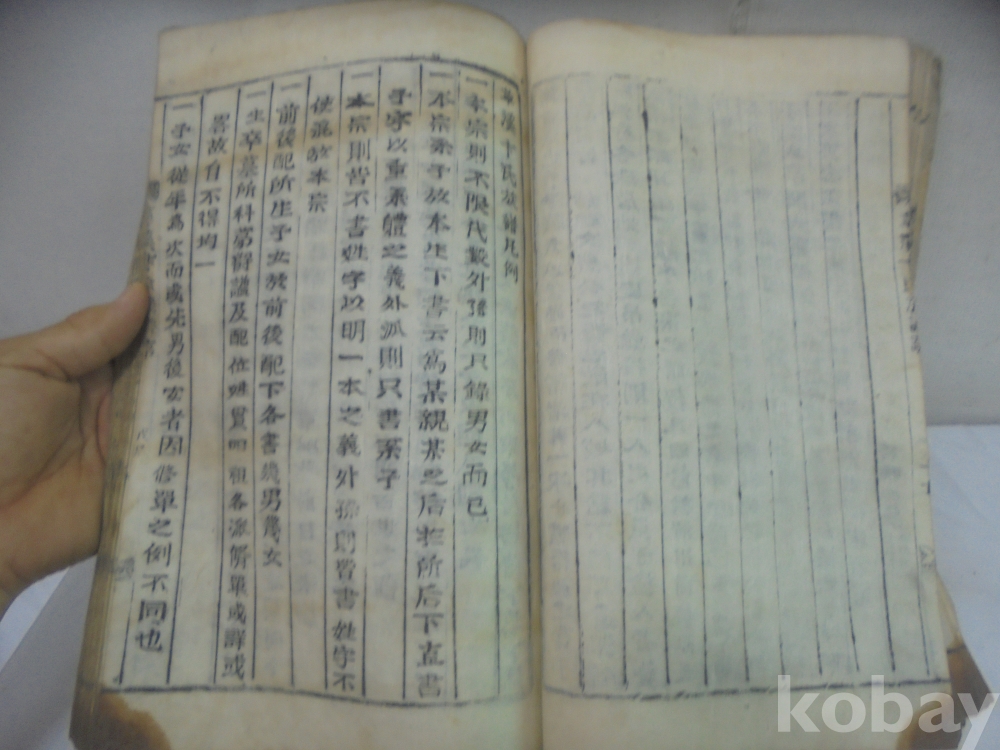 卞氏族譜凡例
一本宗則不限代數外孫則只錄男女而已
一本宗系子於本生下書云爲某親某之后於所后下直書
子字以重系體之義外派則只書系子
一本宗則皆不書姓字以明一本之義外孫則皆書姓字不
使混於本宗
一前後配所生子女於前後配下各書幾男幾女
一生卒墓所科第爵諡及配位姓貫四祖各派所單或詳或
畧故自不得均一
一子女從年爲次而或先男後女者因修單之例不同也
kobay